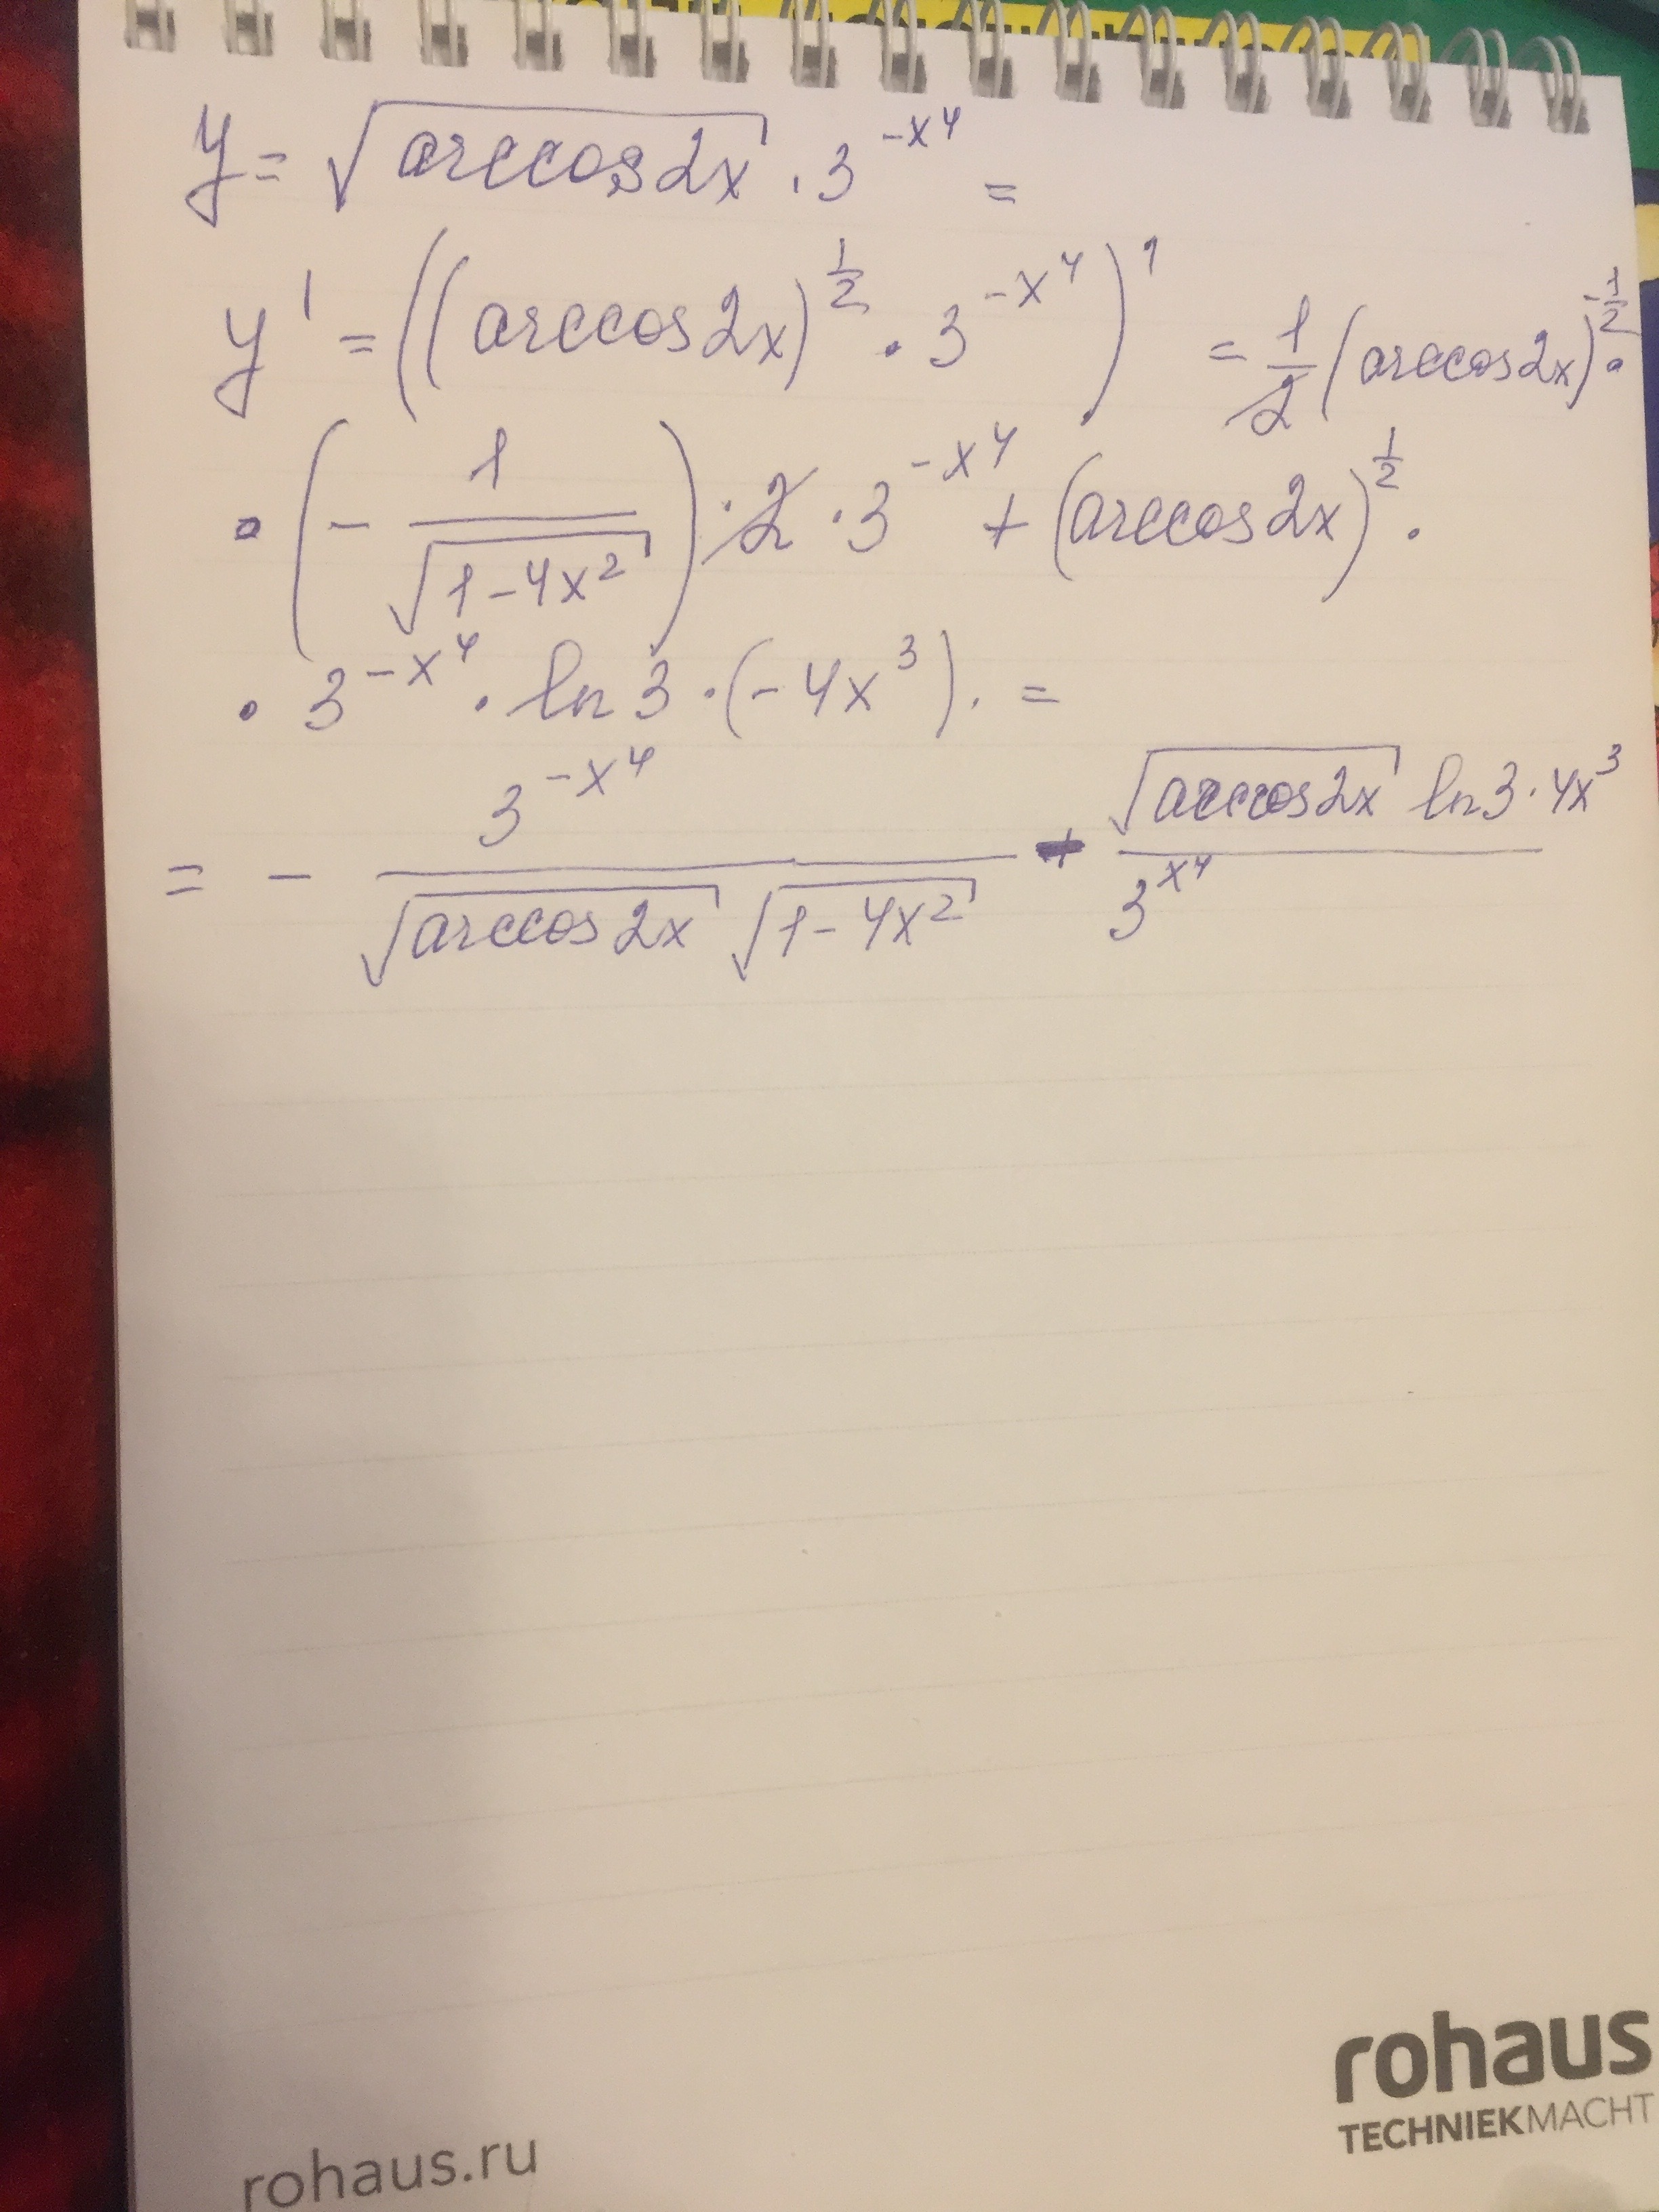 y = √(arccos2x) · 3^(-x^4) =
y' = ((arccos2x)^(1/2) · 3^(-x^4))' = 1/2 (arccos2x)^(-1/2) ·
· (- 1/√(1-4x^2)) · 2 · 3^(-x^4) + (arccos2x)^(1/2) ·
· 3^(-x^4) · ln3 · (-4x^3). =
= - 3^(-x^4)/(√(arccos2x) √(1-4x^2)) - (√(arccos2x) ln3 · 4x^3)/3^(x^4)
rohaus
TECHNIEKMACHT
rohaus.ru